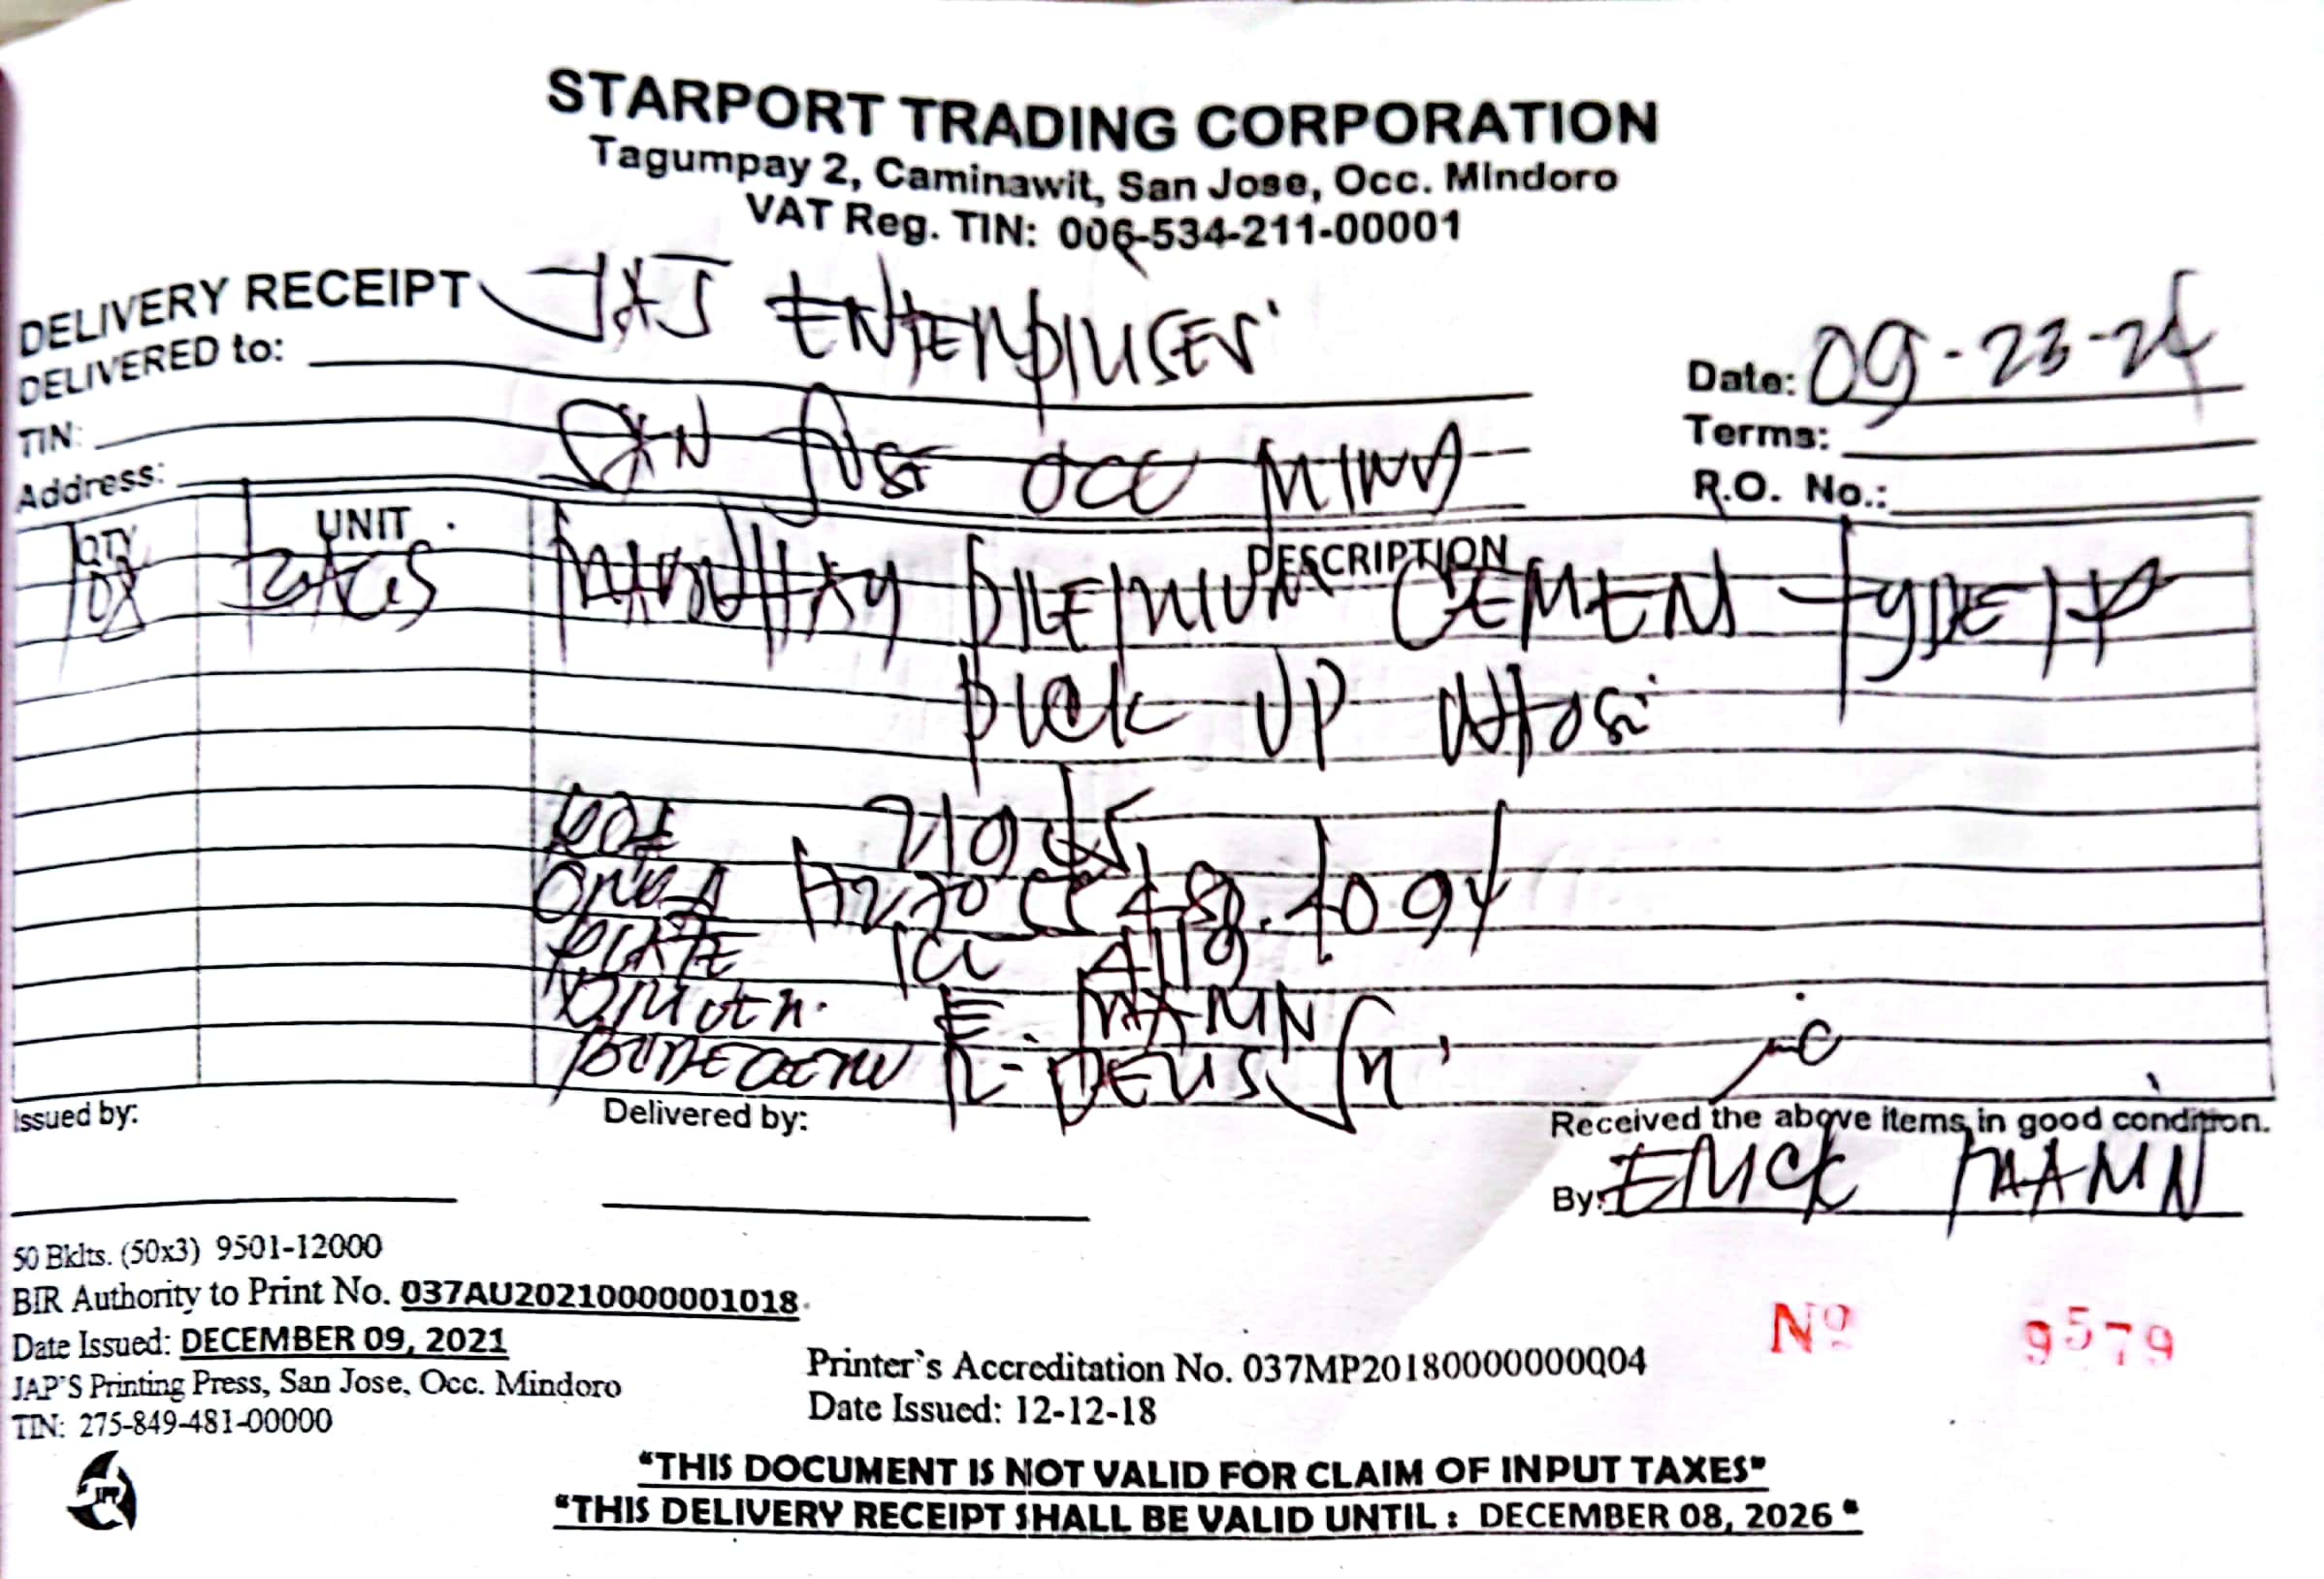 STARPORT TRADING CORPORATION
Tagumpay 2, Caminawit, San Jose, Occ. Mindoro
VAT Reg. TIN: 006-534-211-00001
DELIVERY RECEIPT
DELIVERED to: J&J ENTERPRISES
Date: 09-23-24
TIN:
Terms:
Address: SAN JOSE OCC MIND
R.O. No.:
QTY UNIT DESCRIPTION
BAGS PREMIUM CEMENT TYPE 1P
PICK UP
PLATE
E. MARIN
Issued by:
Delivered by:
Received the above items in good condition.
By: ERICK MARIN
50 Bklts. (50x3) 9501-12000
BIR Authority to Print No. 037AU20210000001018
Date Issued: DECEMBER 09, 2021
JAP'S Printing Press, San Jose, Occ. Mindoro
TIN: 275-849-481-00000
Printer's Accreditation No. 037MP20180000000004
Date Issued: 12-12-18
Nº 9579
"THIS DOCUMENT IS NOT VALID FOR CLAIM OF INPUT TAXES"
"THIS DELIVERY RECEIPT SHALL BE VALID UNTIL : DECEMBER 08, 2026"